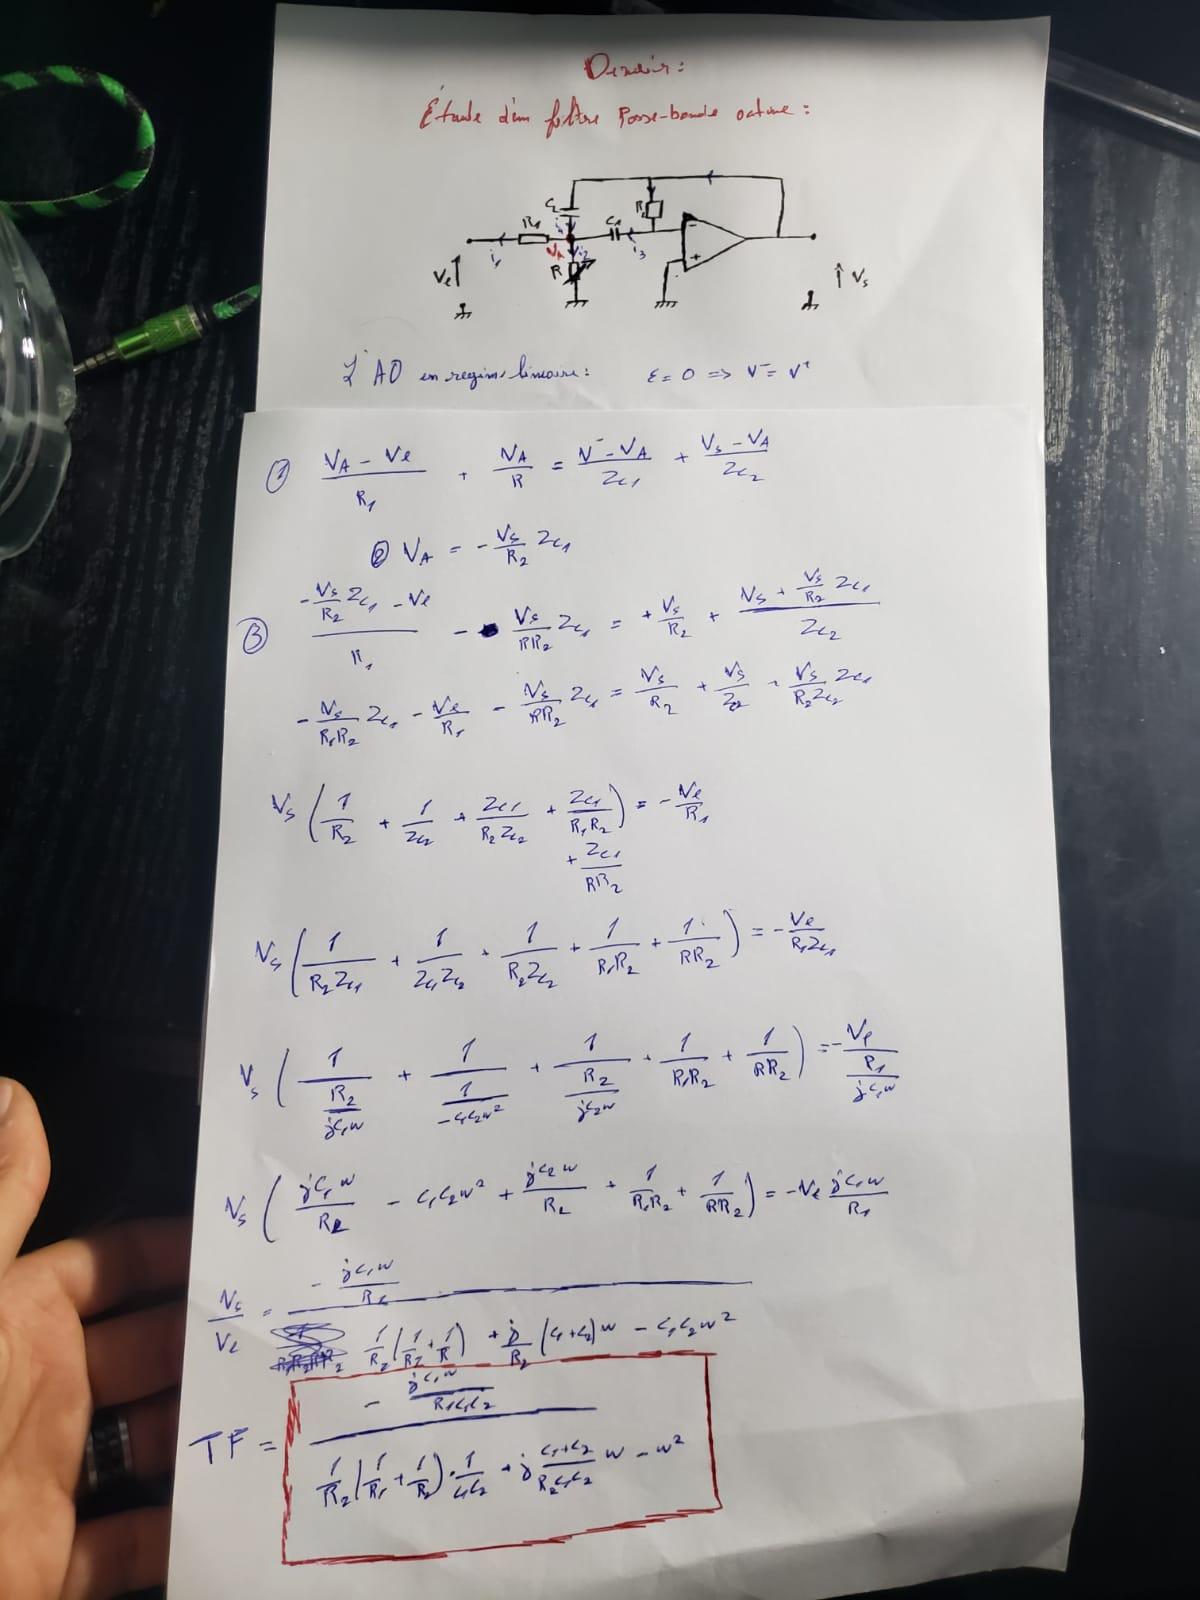 Devoir :
Étude d'un filtre Passe-bande octave :
C2
R1
C1
R2
i1
VA
i2
i3
R
Ve
-
+
Vs
L'AO en regime lineaire : ε = 0 => V⁻ = V⁺
① (VA - Ve)/R1 + VA/R = (V⁻ - VA)/Zc1 + (Vs - VA)/Zc2
② VA = - Vs/R2 Zc1
③ (- Vs/R2 Zc1 - Ve)/R1 - Vs/RR2 Zc1 = + Vs/R2 + (Vs + Vs/R2 Zc1)/Zc2
- Vs/R1R2 Zc1 - Ve/R1 - Vs/RR2 Zc1 = Vs/R2 + Vs/Zc2 + Vs/R2Zc2 Zc1
Vs ( 1/R2 + 1/Zc2 + Zc1/R2Zc2 + Zc1/R1R2 + Zc1/RR2 ) = - Ve/R1
Vs ( 1/R2Zc1 + 1/Zc1Zc2 + 1/R2Zc2 + 1/R1R2 + 1/RR2 ) = - Ve/R1Zc1
Vs ( 1/(R2/jC1w) + 1/(1/-C1C2w²) + 1/(R2/jC2w) + 1/R1R2 + 1/RR2 ) = - Ve/(R1/jC1w)
Vs ( jC1w/R2 - C1C2w² + jC2w/R2 + 1/R1R2 + 1/RR2 ) = - Ve jC1w/R1
Vs/Ve = (- jC1w/R1) / ( 1/R2 (1/R1 + 1/R) + j/R2 (C1+C2)w - C1C2w² )
TF = (- jC1w/R1C1C2) / ( 1/R2 (1/R1 + 1/R) · 1/C1C2 + j (C1+C2)/R2C1C2 w - w² )